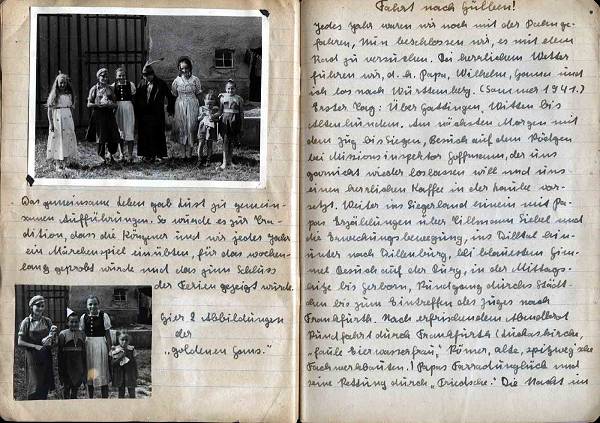 Das gemeinsame Leben gab Lust zu gemein-
samen Aufführungen. So wurde es zur Tra-
dition, dass die Körzner und wir jedes Jahr
ein Märchenspiel einübten, für das wochen-
lang geprobt wurde und das zum Schluss
der Ferien gezeigt wurde.
Hier 2 Abbildungen
der
„goldenen Gans."
Fahrt nach Hülben!
Jedes Jahr waren wir noch mit der Bahn ge-
fahren, nun beschlossen wir, es mit dem
Rad zu versuchen. Bei herrlichem Wetter
fuhren wir, d. h. Papa, Wilhelm, Hanna und
ich los nach Württemberg. (Sommer 1941.)
Erster Tag: Über Hattingen, Witten bis
Altenhundem. Am nächsten Morgen mit
dem Zug bis Siegen, Besuch auf dem Rödgen
bei Missionsinspektor Hoffmann, der uns
garnicht wieder loslassen will und uns
einen herrlichen Kaffe in der Laube vor-
setzt. Weiter ins Siegerland hinein mit Pa-
pas Erzählungen über Tillmann Siebel und
die Erweckungsbewegung, ins Dilltal hin-
unter nach Dillenburg, bei blauestem Him-
mel Besuch auf der Burg, in der Mittags-
hitze bis Herborn, Rundgang durchs Städt-
chen bis zum Eintreffen des Zuges nach
Frankfurth. Nach erfrischendem Abendbrot
Rundfahrt durch Frankfurth (Lukaskirche,
„faule Eierwasserfrau," Römer, alte, spitzweg'sche
Fachwerkbauten.) Papas Fahrradunglück und
seine Rettung durch „Friedsche." Die Nacht im